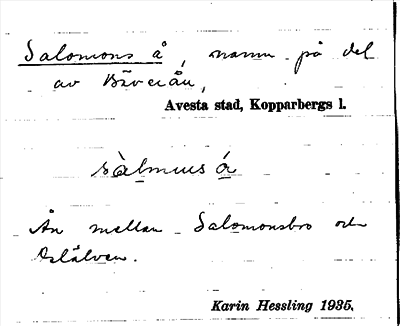 Salomons å, namn på del
av Bäverån,
Avesta stad, Kopparbergs l.
sàlmus á
Ån mellan Salomonsbro och
Dalälven.
Karin Hessling 1935.